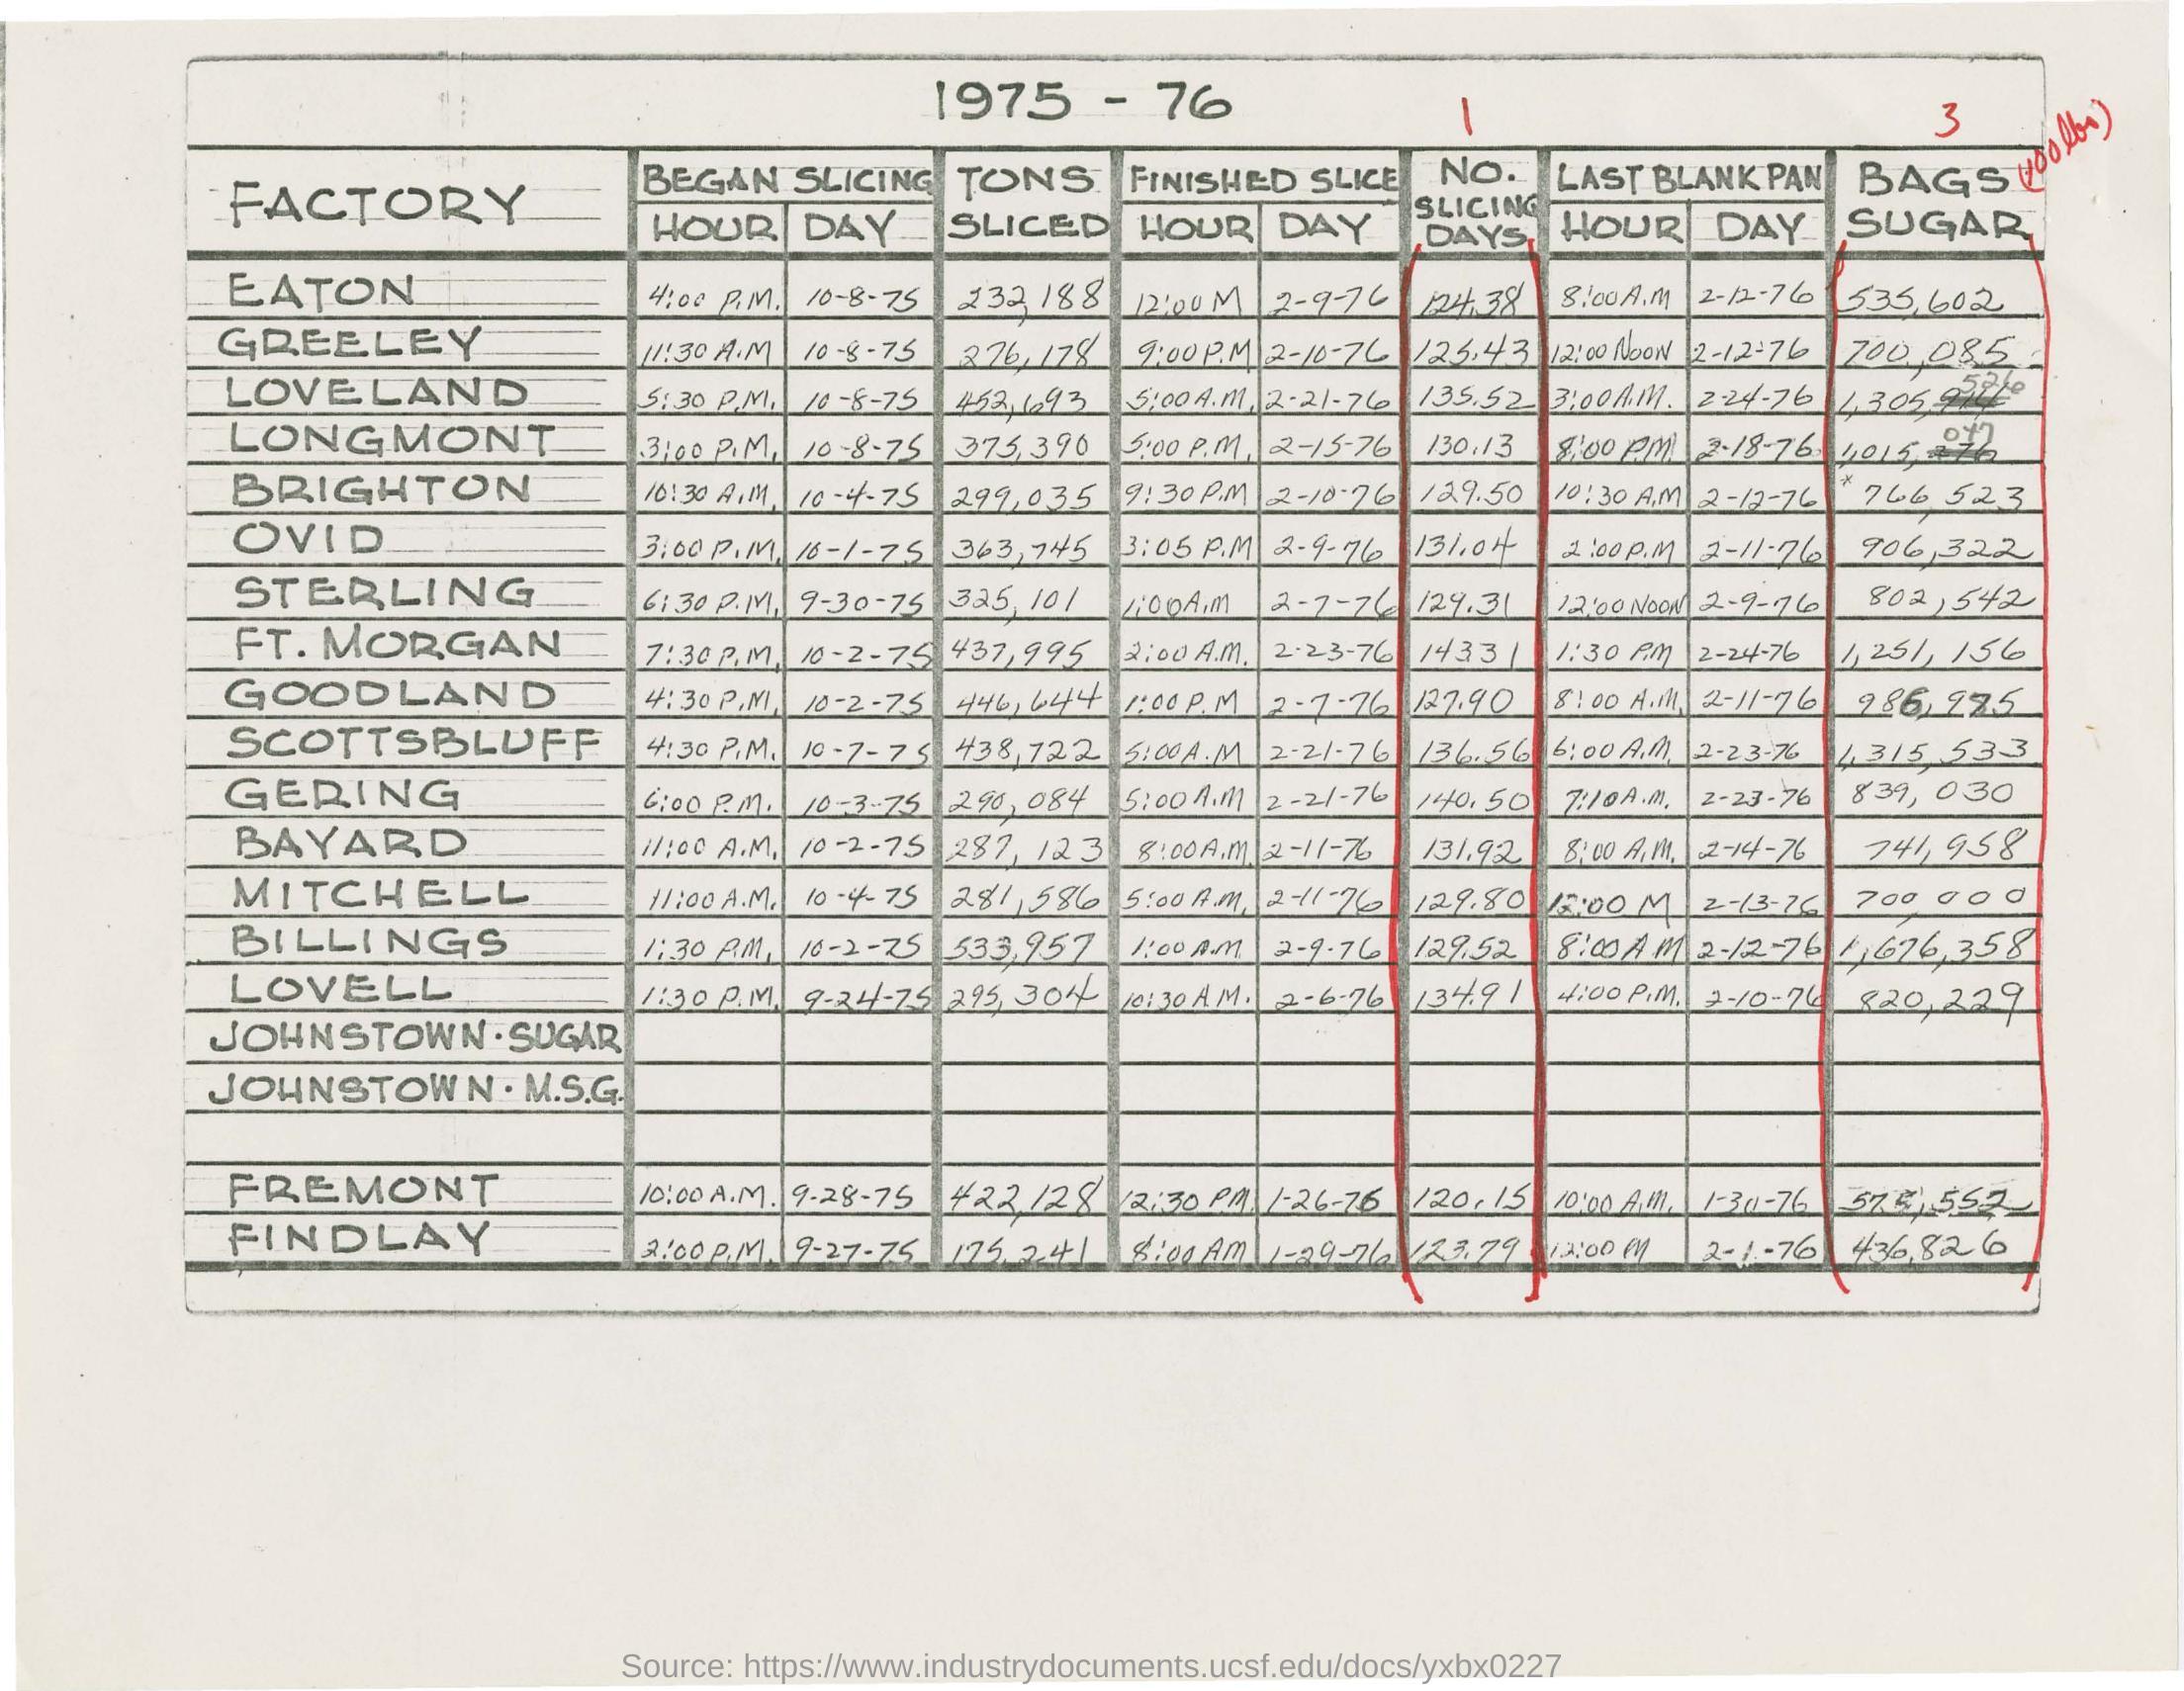 1975 - 76
1 3 (100 lbs)
FACTORY BEGAN SLICING HOUR DAY TONS SLICED FINISHED SLICE HOUR DAY NO. SLICING DAYS LAST BLANK PAN HOUR DAY BAGS SUGAR
EATON 4:00 P.M. 10-8-75 232,188 12:00 M 2-9-76 124.38 8:00 A.M 2-12-76 535,602
GREELEY 11:30 A.M 10-8-75 276,178 9:00 P.M 2-10-76 125.43 12:00 NOON 2-12-76 700,085
LOVELAND 5:30 P.M. 10-8-75 452,693 5:00 A.M. 2-21-76 135.52 3:00 A.M. 2-24-76 1,305, 526
LONGMONT 3:00 P.M. 10-8-75 375,390 5:00 P.M. 2-15-76 130.13 8:00 P.M. 2-18-76 1,015,276 047
BRIGHTON 10:30 A.M. 10-4-75 299,035 9:30 P.M 2-10-76 129.50 10:30 A.M 2-12-76 * 766,523
OVID 3:00 P.M. 10-1-75 363,745 3:05 P.M 2-9-76 131.04 2:00 P.M 2-11-76 906,322
STERLING 6:30 P.M. 9-30-75 325,101 1:00 A.M 2-7-76 129.31 12:00 NOON 2-9-76 802,542
FT. MORGAN 7:30 P.M. 10-2-75 437,995 2:00 A.M. 2-23-76 143.31 1:30 P.M 2-24-76 1,251,156
GOODLAND 4:30 P.M. 10-2-75 446,644 1:00 P.M 2-7-76 127.90 8:00 A.M. 2-11-76
SCOTTSBLUFF 4:30 P.M. 10-7-75 438,722 5:00 A.M 2-21-76 136.56 6:00 A.M. 2-23-76 1,315,533
GERING 6:00 P.M. 10-3-75 290,084 5:00 A.M 2-21-76 140.50 7:10 A.M. 2-23-76 839,030
BAYARD 11:00 A.M. 10-2-75 287,123 8:00 A.M. 2-11-76 131.92 8:00 A.M. 2-14-76 741,958
MITCHELL 11:00 A.M. 10-4-75 281,586 5:00 A.M. 2-11-76 129.80 12:00 M 2-13-76 700,000
BILLINGS 1:30 P.M. 10-2-75 533,957 1:00 A.M. 2-9-76 129.52 8:00 A M 2-12-76 1,676,358
LOVELL 1:30 P.M. 9-24-75 295,304 10:30 A.M. 2-6-76 134.91 4:00 P.M. 2-10-76 820,229
JOHNSTOWN · SUGAR
JOHNSTOWN · M.S.G.
FREMONT 10:00 A.M. 9-28-75 422,128 12:30 P.M. 1-26-76 120.15 10:00 A.M. 1-30-76 575,552
FINDLAY 2:00 P.M. 9-27-75 175,241 8:00 AM 1-29-76 123.79 12:00 M 2-1-76 436,826
Source: https://www.industrydocuments.ucsf.edu/docs/yxbx0227